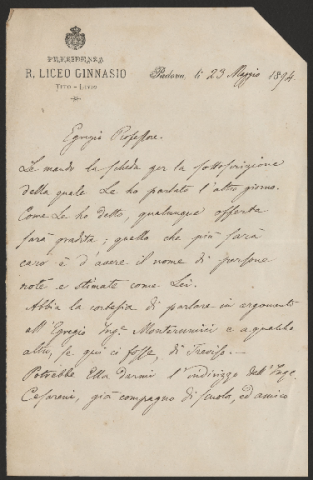 PRESIDENZA
R. LICEO GINNASIO
TITO LIVIO
Padova, li 23 Maggio 1894.
Egregio Professore.
Le mando la scheda per la sottoscrizione
della quale Le ho parlato l'altro giorno.
Come Le ho detto, qualunque offerta
sarà gradita; quello che più sarà
caro è d'avere il nome di persone
note e stimate come Lei.
Abbia la cortesia di parlare in argomento
all'Egregio Ing.e Monterumici e a qualche
altro, se qui ci fosse, di Treviso.—
Potrebbe Ella darmi l'indirizzo dell'Ing.
Cesareni, già compagno di scuola, ed amico